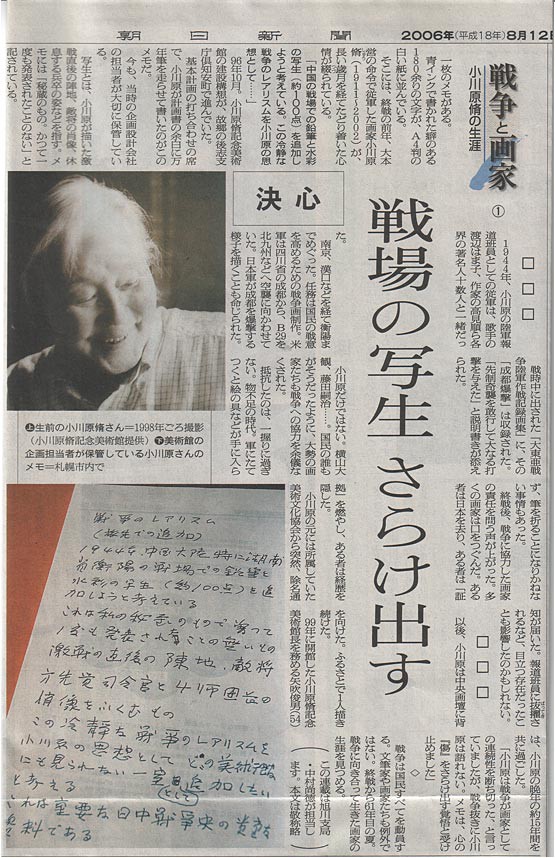 朝日新聞
2006年(平成18年)8月12日
戦争と画家
小川原脩の生涯
①
戦場の写生 さらけ出す
決心
一枚のメモがある。
青インクで書かれた癖のある
180余りの文字が、A4判の
白い紙に並んでいる。
そこには、終戦の前年、大本
営の命令で従軍した画家小川原
脩(1911~2002)が、
長い歳月を経てたどり着いた心
情が綴られている。
「中国の戦場での鉛筆と水彩
の写生(約100点)を追加し
ようと考えている。この冷静な
戦争のレアリズムを小川原の思
想として……」
96年10月、小川原脩記念美術
館の建設構想が、故郷の後志支
庁倶知安町で進んでいた。
基本計画の打ち合わせの席
で、小川原が計画書の余白に万
年筆を走らせて書いたのがこの
メモだ。
今も、当時の企画設計会社
の担当者が大切に保管してい
る。
写生とは、小川原が描いた激
戦直後の陣地、敵将の肖像、休
息する兵卒の姿などを指す。メ
モには「秘蔵のもの。かつて一
度も発表されたことのない」と
記されている。
□□□
1944年、小川原の陸軍報
道班員としての従軍は、歌手の
渡辺はま子、作家の高見順ら各
界の著名人十数人と一緒だっ
た。
南京、漢口などを経て衡陽ま
でめぐった。任務は国民の戦意
を高めるための戦争画制作。米
軍は四川省の成都から、B29を
北九州などへ空襲に向かわせて
いた。日本軍が成都を爆撃する
様子を描くことも命じられた。
戦時中に出された「大東亜戦
争陸軍作戦記録画集」に、その
「成都爆撃」は収録された。
「先制奇襲を敢行して大なる打
撃を与えた」と説明書きが添え
られた。
小川原だけではない。横山大
観、藤田嗣治……。国民の誰も
がそうだったように、大勢の画
家たちも戦争への協力を余儀な
くされた。
抵抗したのは、一握りに過ぎ
ない。物不足の時代、軍にたて
つくと絵の具などが手に入ら
ず、筆を折ることになりかねな
い事情もあった。
終戦後、戦争に協力した画家
の責任を問う声が上がった。多
くの画家は口をつぐんだ。ある
者は日本を去り、ある者は「証
拠」を燃やし、ある者は経歴を
隠した。
小川原の元には所属していた
美術文化協会から突然、除名通
知が届いた。報道班員に抜擢さ
れるなど、目立つ存在だったこ
とも影響したのかもしれない。
□□□
以後、小川原は中央画壇に背
を向けた。ふるさとで1人描き
続けた。
99年に開館した小川原脩記念
美術館長を務める矢吹俊男(54)
は、小川原の晩年の約15年間を
共に過ごした。
「小川原は戦争が画家として
の連続性を断ち切った、と言っ
ていましたが、戦争抜きに小川
原は語れない。メモは、心の
『傷』をさらけ出す覚悟と受け
止めました」
◇
戦争は国民すべてを動員す
る。文筆家や画家たちも例外で
はない。終戦から61年目の夏。
戦争に向き合って生きた画家の
生涯を見つめる。
(この連載は旭川支局
・中村尚徳が担当し
ます。本文は敬称略)
㊤生前の小川原脩さん=1998年ごろ撮影
(小川原脩記念美術館提供)㊦美術館の
企画担当者が保管している小川原さんの
メモ=札幌市内で
戦争のレアリスム
(構先での追加)
1944年中国大陸特に湖南
省衡陽の戦場での鉛筆と
水彩の写生(約100点)を追
加しようと考えている
これは私の秘蔵のもので嘗って
1度も発表されることの無いもの
激戦の直後の陳地、敵将
方先覚司令官と4川市囲長の
肖像をふくむもの
この冷静な戦争のレアリスムを
小川原の思想として どの美術館
にも見られない 室目追加したい
として
と考える
これは重要な日中戦争史の資
料である